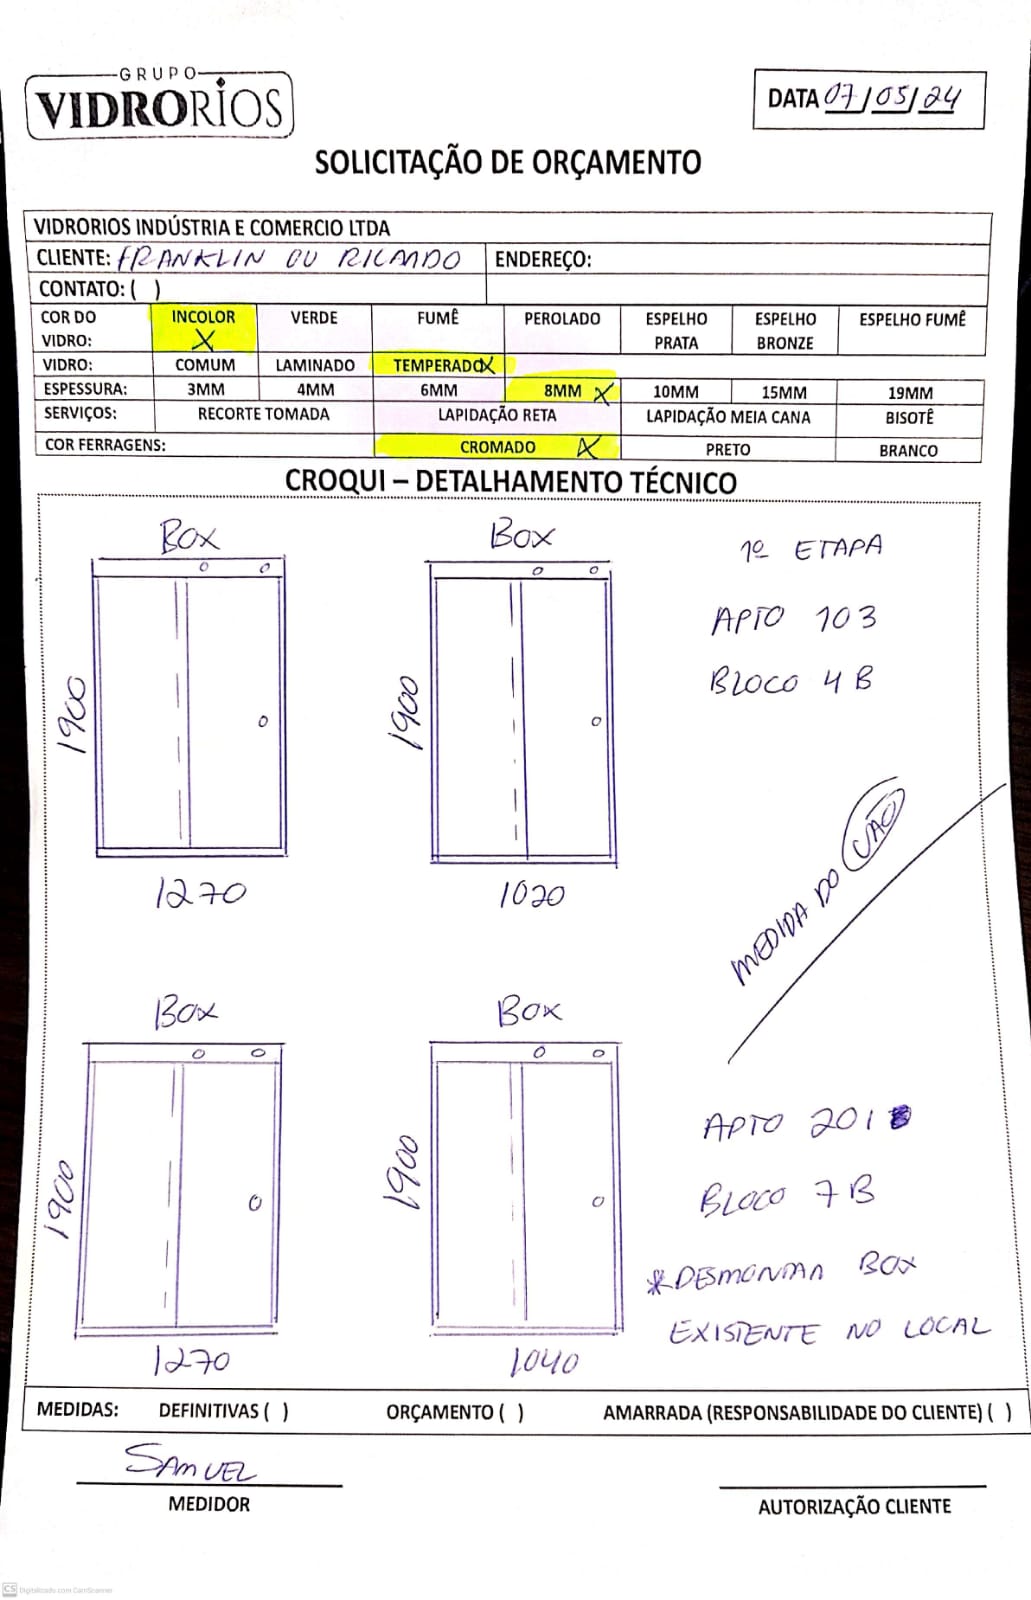 GRUPO
VIDRORIOS
DATA 07/05/24
SOLICITAÇÃO DE ORÇAMENTO
VIDRORIOS INDÚSTRIA E COMERCIO LTDA
CLIENTE: FRANKLIN OU RICARDO ENDEREÇO:
CONTATO: ( )
COR DO VIDRO: INCOLOR X VERDE FUMÊ PEROLADO ESPELHO PRATA ESPELHO BRONZE ESPELHO FUMÊ
VIDRO: COMUM LAMINADO TEMPERADO X
ESPESSURA: 3MM 4MM 6MM 8MM X 10MM 15MM 19MM
SERVIÇOS: RECORTE TOMADA LAPIDAÇÃO RETA LAPIDAÇÃO MEIA CANA BISOTÊ
COR FERRAGENS: CROMADO X PRETO BRANCO
CROQUI – DETALHAMENTO TÉCNICO
BOX BOX
1º ETAPA
APTO 103
BLOCO 4B
1900 1900
1270 1020
MEDIDA DO VÃO
BOX BOX
APTO 201
BLOCO 7B
1900 1900
*DESMONTAR BOX
EXISTENTE NO LOCAL
1270 1040
MEDIDAS: DEFINITIVAS ( ) ORÇAMENTO ( ) AMARRADA (RESPONSABILIDADE DO CLIENTE) ( )
SAMUEL
MEDIDOR AUTORIZAÇÃO CLIENTE
CS Digitalizado com CamScanner